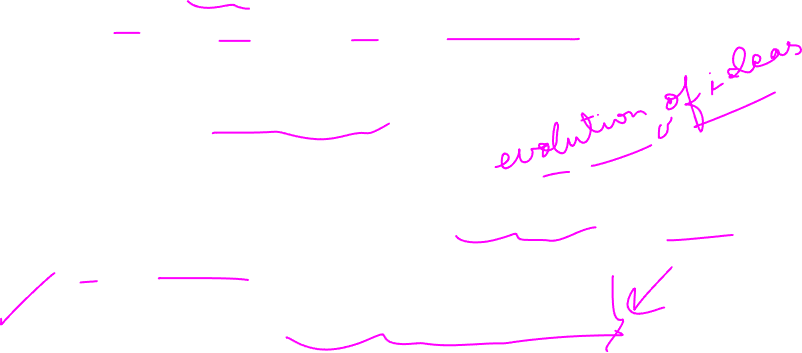 evolution of ideas